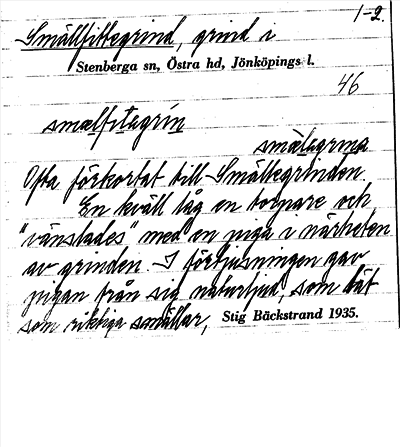 1-2.
Smällfittegrind, grind i
Stenberga sn, Östra hd, Jönköpings l.
46
smælfitagrín
smælagrina
Ofta förkortat till Smällegrinden.
En kväll låg en tornare och
"vänslades" med en piga i närheten
av grinden. I förtjusningen gav
pigan från sig naturljud, som lät
som riktiga smällar,
Stig Bäckstrand 1935.